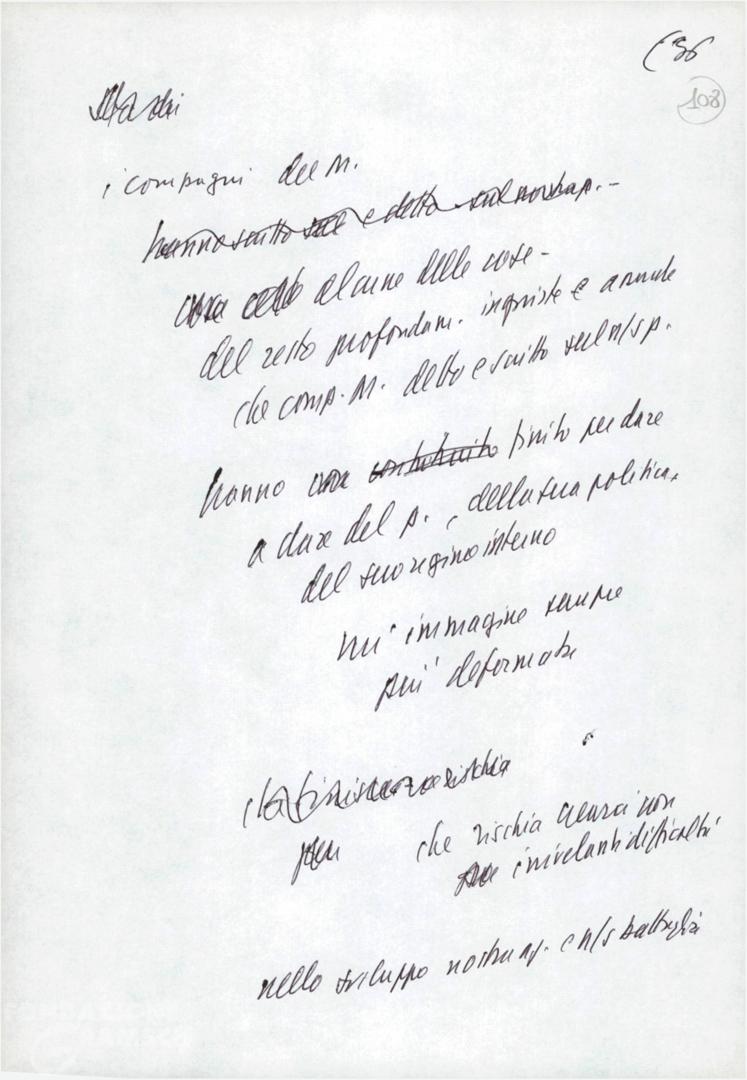 (36
108
i compagni del M.
hanno scritto e detto sul nostro p. -
alcune delle cose -
del resto profondam. ingiuste e assurde
che comp. M. detto e scritto sul n/s p.
hanno finito per dare
a dare del p., della sua politica,
del suo regime interno
un' immagine sempre
più deformata
che rischia
che rischia creare non
irrilevanti difficoltà
nello sviluppo nostro ap. e n/s battaglia